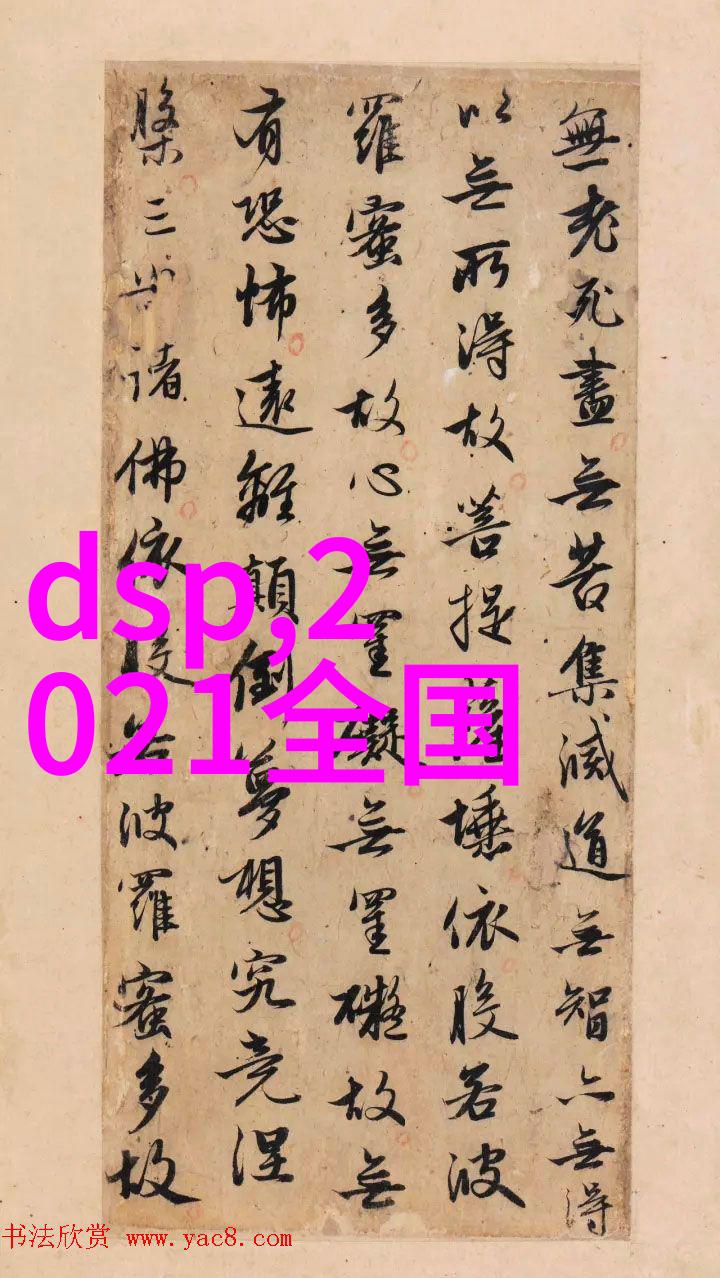 無老死盡無苦集滅道無智亦無得
以無所得故菩提薩埵依般若波
羅蜜多故心無罣礙無罣礙故無
有恐怖遠離顛倒夢想究竟涅
槃三世諸佛依般若波羅蜜多故
dsp,2
021全国
书法欣赏 www.yac8.com